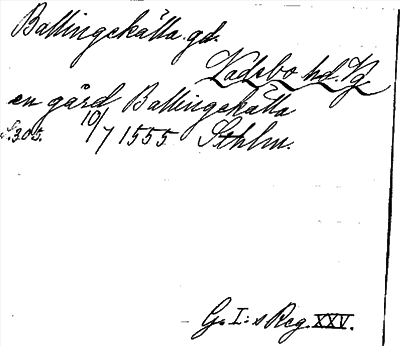 Ballingekälla. gd.
Vadsbo hd. Vg
en gård Ballingekälla
s. 305. 10/7 1555. Sthlm.
G. I:s Reg. XXV.